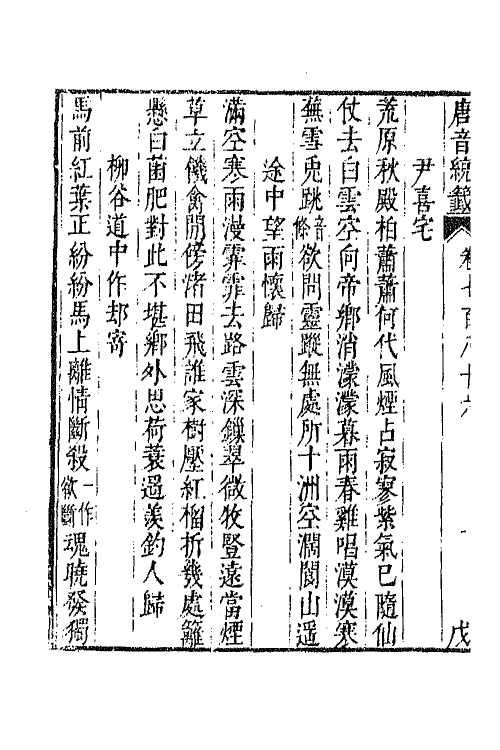 唐音統籤 卷七百八十六 一 戊
尹喜宅
荒原秋殿柏蕭蕭何代風煙占寂寥紫氣已隨仙
仗去白雲空向帝鄉消濛濛暮雨春雞唱漠漠寒
蕪雪兎跳音條欲問靈蹤無處所十洲空濶閬山遥
途中望雨懷歸
滿空寒雨漫霏霏去路雲深鏁翠微牧豎遠當煙
草立饑禽閒傍渚田飛誰家樹壓紅榴折幾處籬
懸白菌肥對此不堪鄉外思荷蓑遥羡釣人歸
柳谷道中作却寄
馬前紅葉正紛紛馬上離情斷殺一作欲斷魂曉發獨